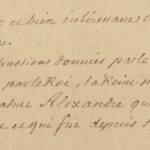 et bien intéressans
tructions données par le
par le Roi, la Reine
ature Alexandre qu
qui fut depuis